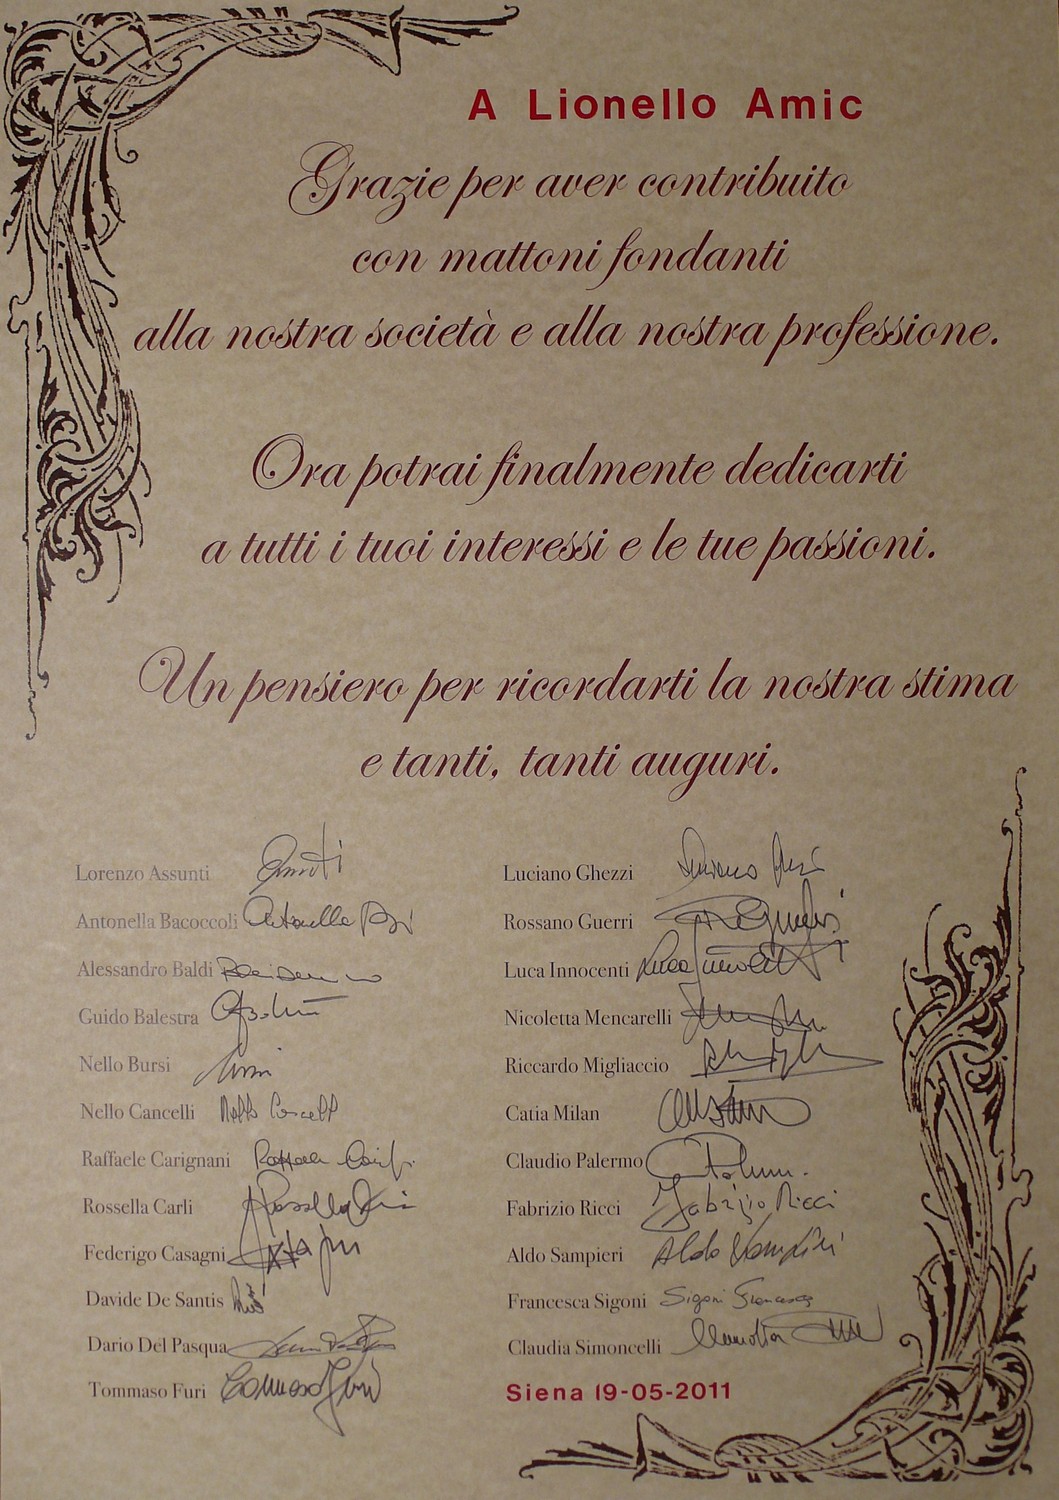 A Lionello Amic
Grazie per aver contribuito
con mattoni fondanti
alla nostra società e alla nostra professione.
Ora potrai finalmente dedicarti
a tutti i tuoi interessi e le tue passioni.
Un pensiero per ricordarti la nostra stima
e tanti, tanti auguri.
Lorenzo Assunti
Antonella Bacoccoli
Alessandro Baldi
Guido Balestra
Nello Bursi
Nello Cancelli Nello Cancelli
Raffaele Carignani
Rossella Carli
Federigo Casagni
Davide De Santis
Dario Del Pasqua
Tommaso Furi Tommaso Furi
Luciano Ghezzi
Rossano Guerri
Luca Innocenti Luca Innocenti
Nicoletta Mencarelli
Riccardo Migliaccio
Catia Milan
Claudio Palermo
Fabrizio Ricci Fabrizio Ricci
Aldo Sampieri Aldo Sampieri
Francesca Sigoni Sigoni Francesca
Claudia Simoncelli
Siena 19-05-2011